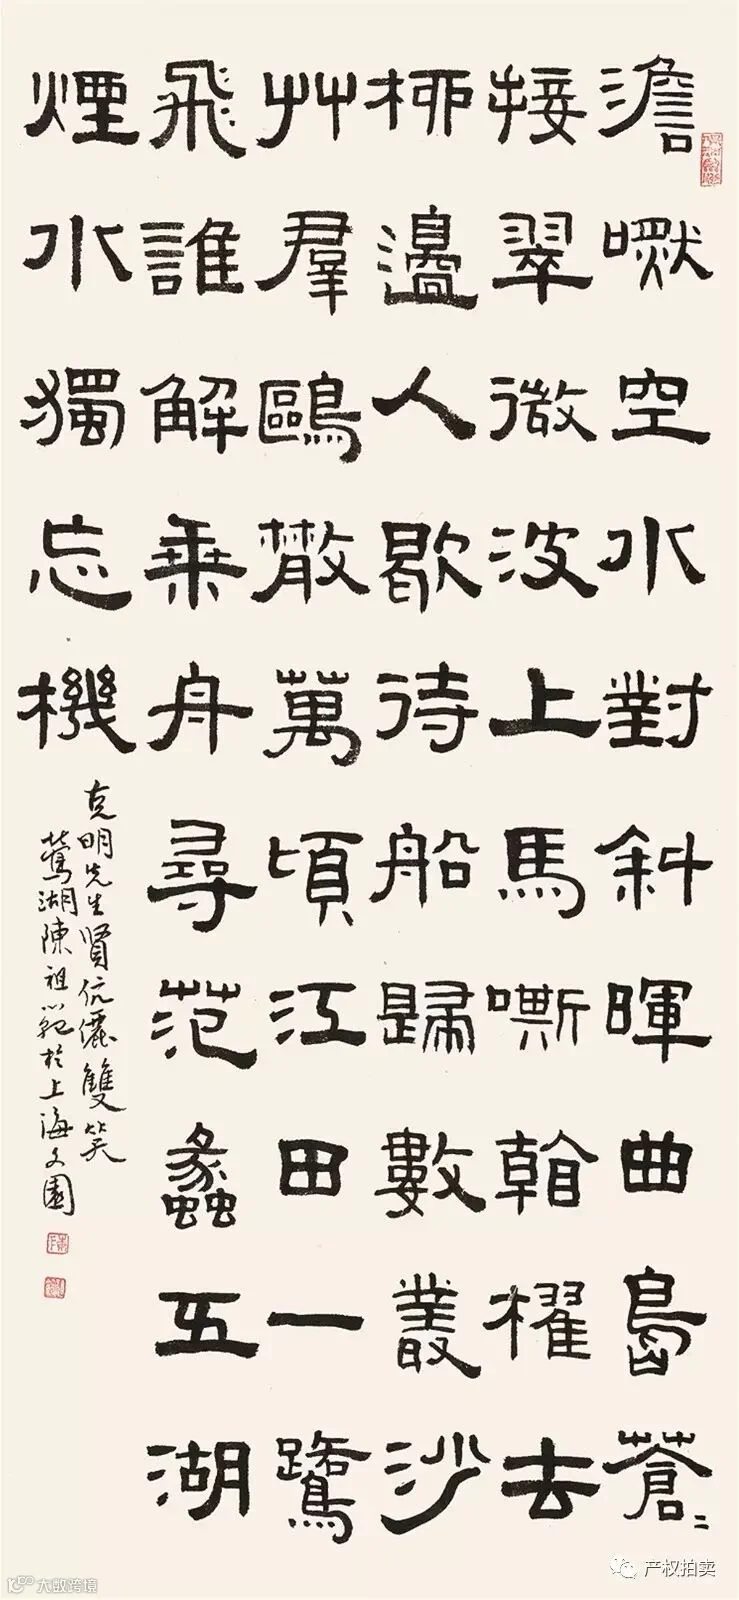 澹然空水對斜暉曲島蒼〻
接翠微波上馬嘶看櫂去
柳邊人歇待船歸數叢沙
艸羣鷗散萬頃江田一鷺
飛誰解乗舟尋范蠡五湖
煙水獨忘機
克明先生賢伉儷雙笑
鶯湖陳祖範於上海文園
大数跨境
产权拍卖